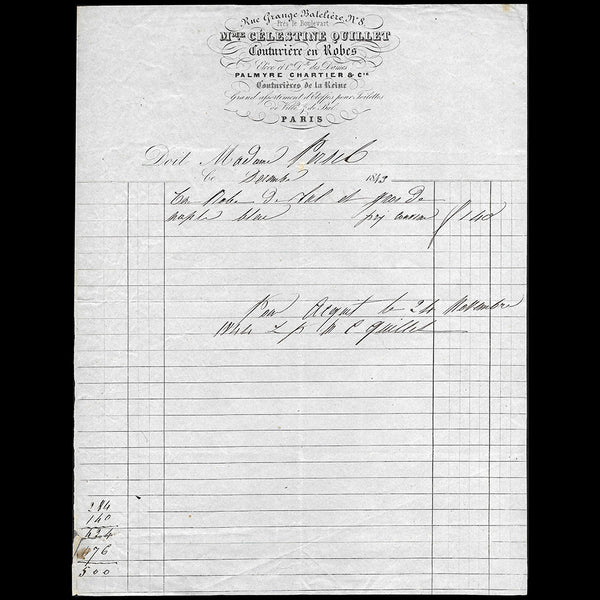 Rue Grange-Batelière, N° 8,
Près le Boulevart
Mme CÉLESTINE QUILLET
Couturière en Robes
Elève et 1re Dlle des Dames
PALMYRE CHARTIER & Cie
Couturières de la Reine
Grand assortiment d'Etoffes pour Toilettes
de Ville & de Bal.
PARIS
Doit Madame
Ce Décembre 1843
Robe de et gros de
naple bleu prix f 140
Pour Acquit le 24 Novembre
1844 p M C Quillet
284
140
424
76
500